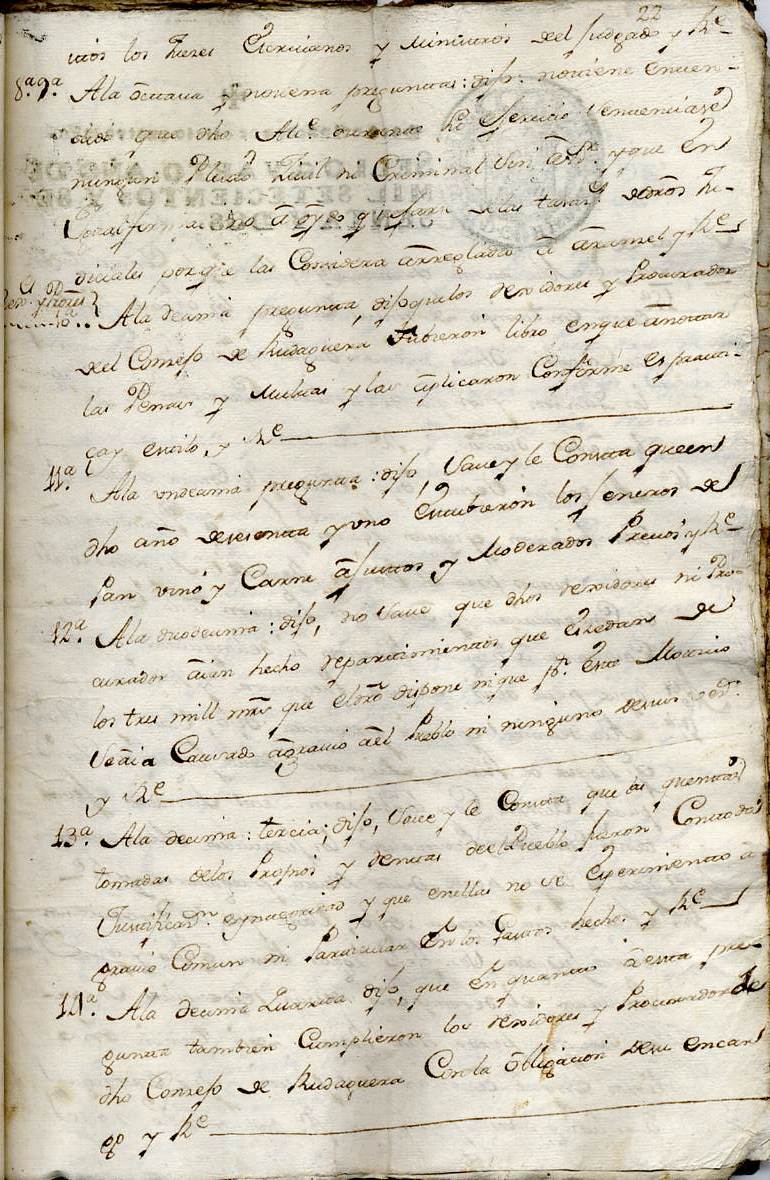 22
los Jueces Escrivanos y Ministros del Juzgado y Rde
8ª 9ª Ala octava y novena preguntas: dijo: no tiene enten-
dido que dho Alce durante su Exercicio sentenciase
ningun Pleito Zivil ni Criminal sin y que en
igual forma no a oydo quejarse de las tasas. de dros Ju-
diciales porque las Considera arregladas a aranzel y Rde
10ª.. Ala decima pregunta, dijo que los Rexidores y Procurador
del Consejo de Rudaguera tubieron libro en que anotar
las Penas y Multas y las aplicaron Conforme es practi-
ca y estilo, y Rde
11ª. Ala undecima pregunta: dijo, Save y le Consta que en
dho año de sesenta y uno Estubieron los Jeneros del
Pan vino y Carne a Justos y Moderados Precios y Rde
12ª. Ala duodecima: dijo, no Save que dhos Rexidores ni Pro-
curador aian hecho repartimientos que Excedan de
los tres mill mrs que el dro dispone ni que pr. Este Motivo
se aia Causado agravio a el Pueblo ni ninguno de sus
y Rde
13ª Ala decima: tercia; dijo, Save y le Consta que las quentas
tomadas de los Propios y Rentas del Pueblo fueron Con todas
Justificazn. e ynteg​ridad y que en ellas no se Experimento a
gravio Comun ni Particular En los Gastos hechos y Rde
14ª. Ala decima Quarta dijo, que en quanto a esta pre-
gunta tambien Cumplieron los Rexidores y Procurador de
dho Consejo de Rudaguera Con la obligacion de su encar
go y Rde